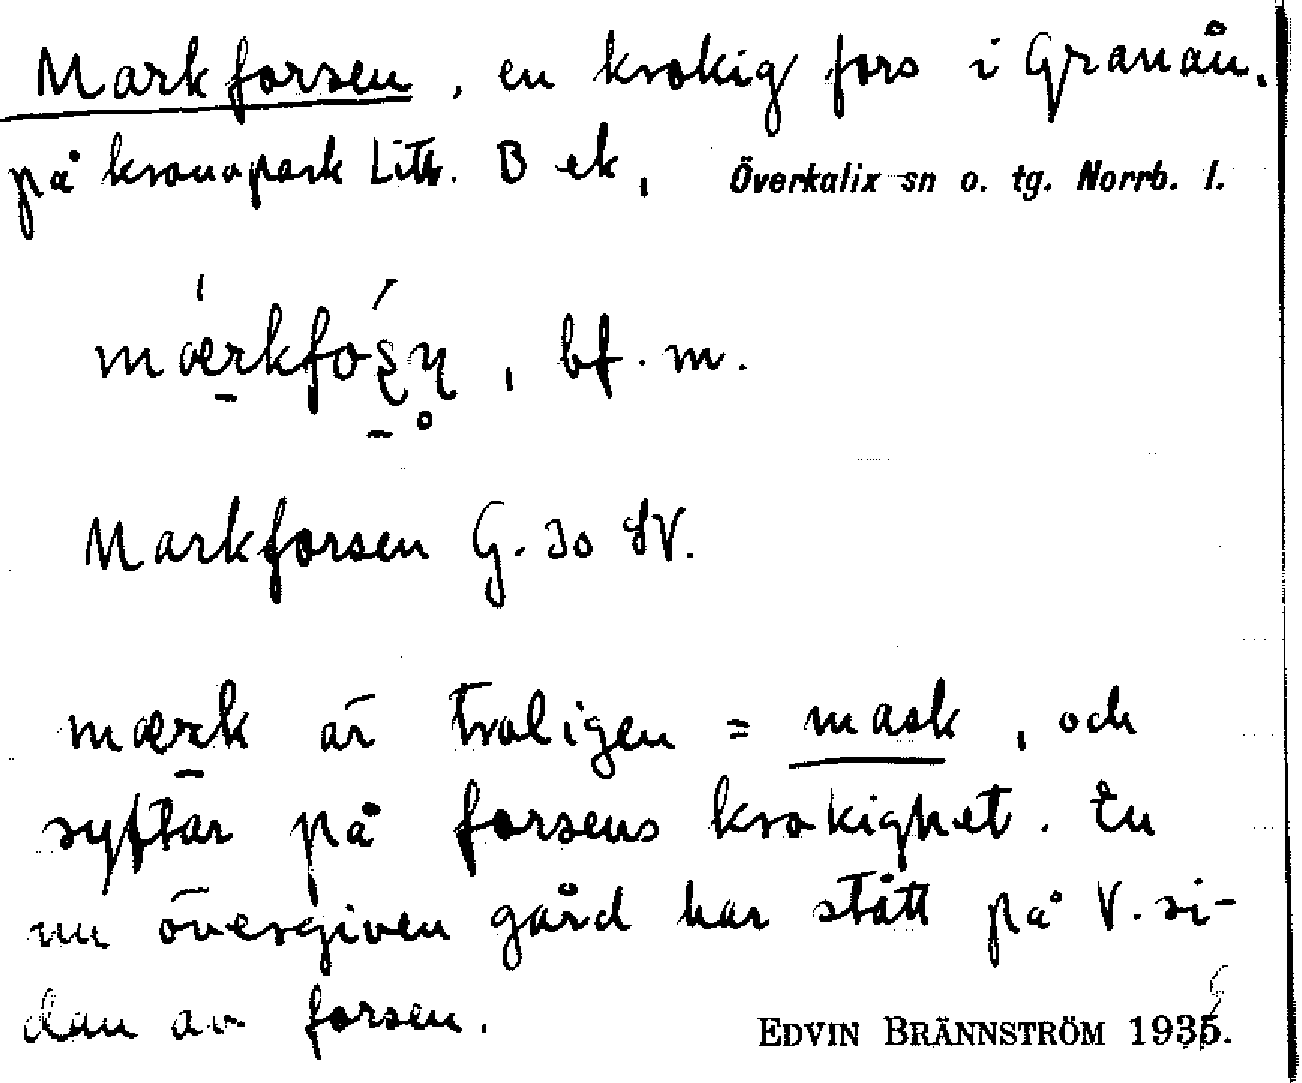 Markforsen, en krokig fors i Granån,
på kronopark Litt. B ek, Överkalix sn o. tg. Norrb. l.
mærkfoʂn̥, bf. m.
Markforsen G. 30 SV.
mærk är troligen = mask, och
syftar på forsens krokighet. En
nu övergiven gård har stått på V. si-
dan av forsen.
EDVIN BRÄNNSTRÖM 1936.